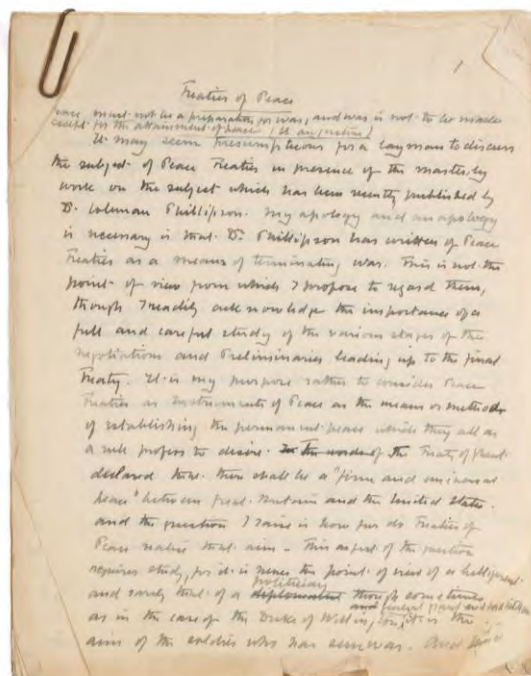 1
Treaties of Peace
Peace must not be a preparation for war, and war is not to be made
except for the attainment of peace (St Augustine)
It may seem presumptuous for a layman to discuss
the subject of Peace Treaties in presence of the masterly
work on the subject which has been recently published by
Dr. Coleman Phillipson. My apology and an apology
is necessary is that Dr. Phillipson has written of Peace
Treaties as a means of terminating war. This is not the
point of view from which I propose to regard them,
though I readily acknowledge the importance of a
full and careful study of the various stages of the
negotiations and Preliminaries leading up to the final
Treaty. It is my purpose rather to consider Peace
Treaties as Instruments of Peace as the means or method
of establishing the permanent peace which they all as
a rule profess to desire. In the words of the Treaty of Ghent
declared that there shall be a "firm and universal
peace" between Great Britain and the United States.
and the question I raise is how far do Treaties of
Peace realise that aim - This aspect of the question
requires study, for it is never the point of view of a belligerent
politician
and rarely that of a diplomatist though sometimes
and General Grant
as in the case of the Duke of Wellington, it is the
aim of the soldier who has seen war. And